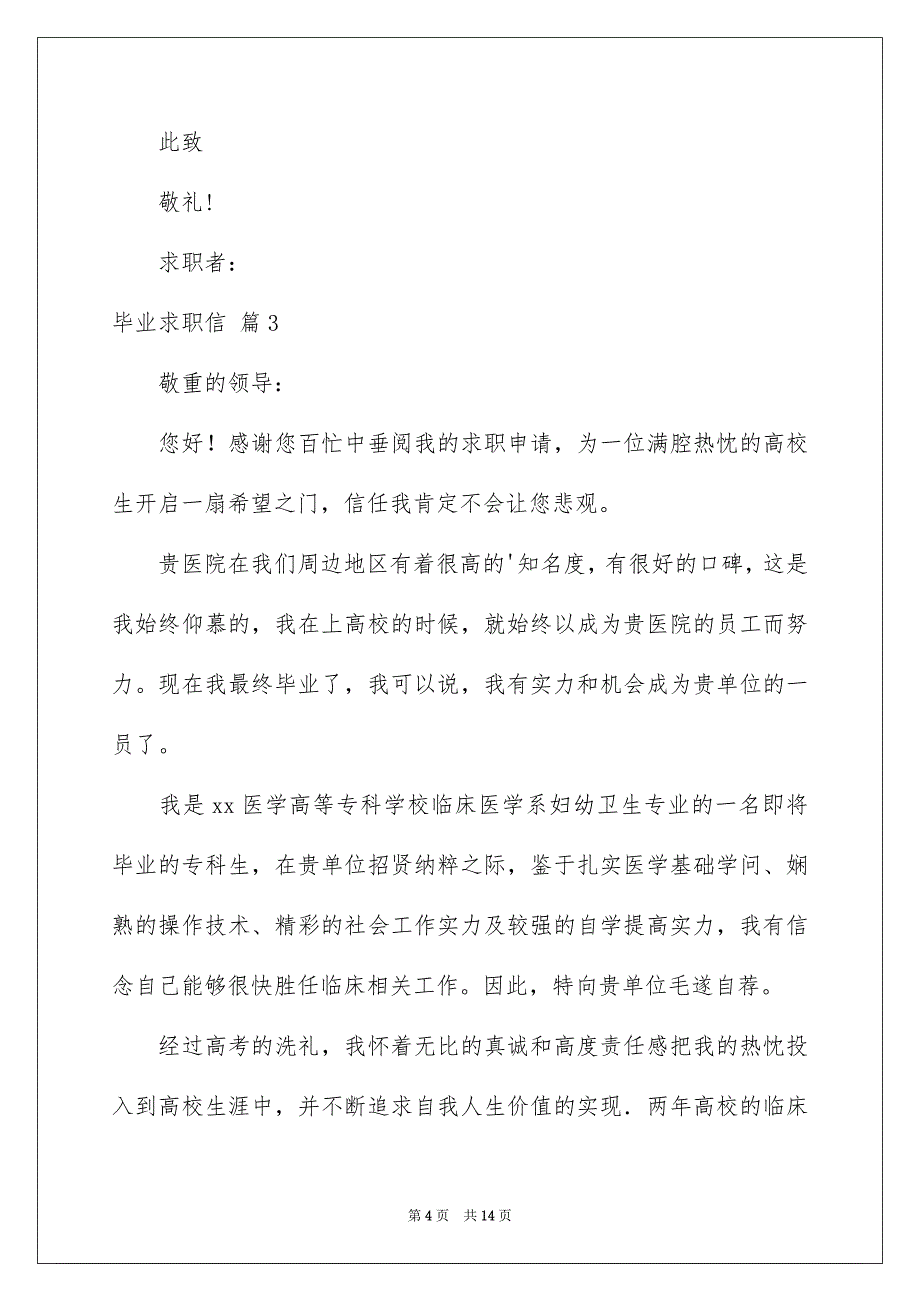 此致
敬礼!
求职者:
毕业求职信 篇3
敬重的领导:
您好!感谢您百忙中垂阅我的求职申请,为一位满腔热忱的高校
生开启一扇希望之门,信任我肯定不会让您悲观。
贵医院在我们周边地区有着很高的'知名度,有很好的口碑,这是
我始终仰慕的,我在上高校的时候,就始终以成为贵医院的员工而努
力。现在我最终毕业了,我可以说,我有实力和机会成为贵单位的一
员了。
我是 xx 医学高等专科学校临床医学系妇幼卫生专业的一名即将
毕业的专科生,在贵单位招贤纳粹之际,鉴于扎实医学基础学问、娴
熟的操作技术、精彩的社会工作实力及较强的自学提高实力,我有信
念自己能够很快胜任临床相关工作。因此,特向贵单位毛遂自荐。
经过高考的洗礼,我怀着无比的真诚和高度责任感把我的热忱投
入到高校生涯中,并不断追求自我人生价值的实现.两年高校的临床
第 4 页 共 14 页